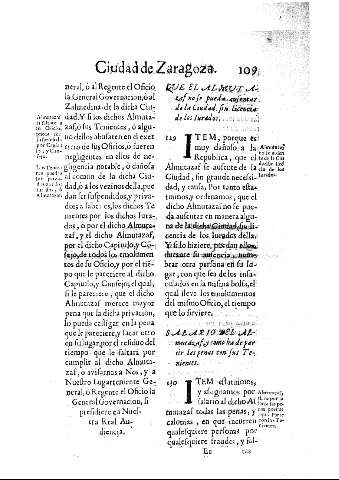 Ciudad de Zaragoza. 109
neral, ò al Regente el Oficio
la General Governacion, ò al
Zalmedina de la dicha Ciu-
dad. Y si los dichos Almuta-
zaf, o Tenientes, ò algu-
no dellos abusaren en el exer-
cicio de sus Oficios, ò fueren
negligentes, en ellos de ne-
gligencia notable, ò dañosa
al comun de la dicha Ciu-
dad, ò a los vezinos della, pue-
dan ser suspendidos, y priva-
dos; a saber es, los dichos Te
nientes por los dichos Jura-
dos, o por el dicho Almuta-
zaf, y el dicho Almutazaf,
por el dicho Capitulo, y Co-
sejo, de todos los emolumen
tos de su Oficio, y por el tiē-
po que le pareciere al dicho
Capitulo, y Consejo, el qual,
si le pareciere, que el dicho
Almutazaf merece mayor
pena que la dicha privacion,
lo pueda castigar en la pena
que le pareciere, y sacar otro
en su lugar por el residuo del
tiempo que le faltará por
cumplir al dicho Almuta-
zaf, ò avisarnos a Nos, y a
Nuestro Lugarteniente Ge-
neral, ò Regente el Oficio la
General Governacion, si
presidiere en Nues-
tra Real Au-
diencia.
QUE EL ALMUTA-
zaf no se pueda ausentar
de la Ciudad, sin licencia
de los Jurados.
129 ITEM, porque es
muy dañoso a la
Republica, que el
Almutazaf se ausente de la
Ciudad, sin grande necessi-
dad, y causa, Por tanto esta-
tuimos, y ordenamos, que el
dicho Almutazaf no se pue-
da ausentar en manera algu-
na de la dicha Ciudad, sin li-
cencia de los Jurados della.
Y si lo hiziere, puedan ellos,
durante su ausencia, nom-
brar otra persona en su lu-
gar, con que sea de los insa-
culados en la misma bolsa, el
qual lleve los emolumentos
del mismo Oficio, el tiempo
que lo sirviere.
SALARIO DEL AL-
mutazaf, y como ha de par-
tir las penas con sus Te-
nientes.
130 ITEM estatuimos,
y assignamos por
salario al dicho Al
mutazaf todas las penas, y
calonias, en que incurren
qualesquiere personas por
qualesquiere fraudes, y fal-
Ee tas